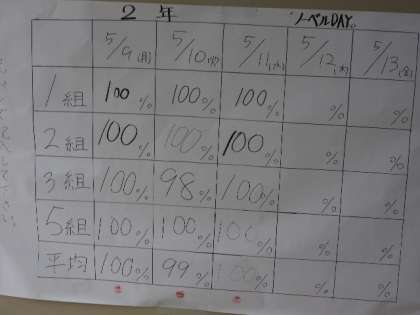 2年 ノーベルDAY。
5/9(月) 5/10(火) 5/11(水) 5/12(木) 5/13(金)
1組 100% 100% 100% % %
2組 100% 100% 100% % %
3組 100% 98% 100% % %
5組 100% 100% 100% % %
平均 100% 99% 100% % %